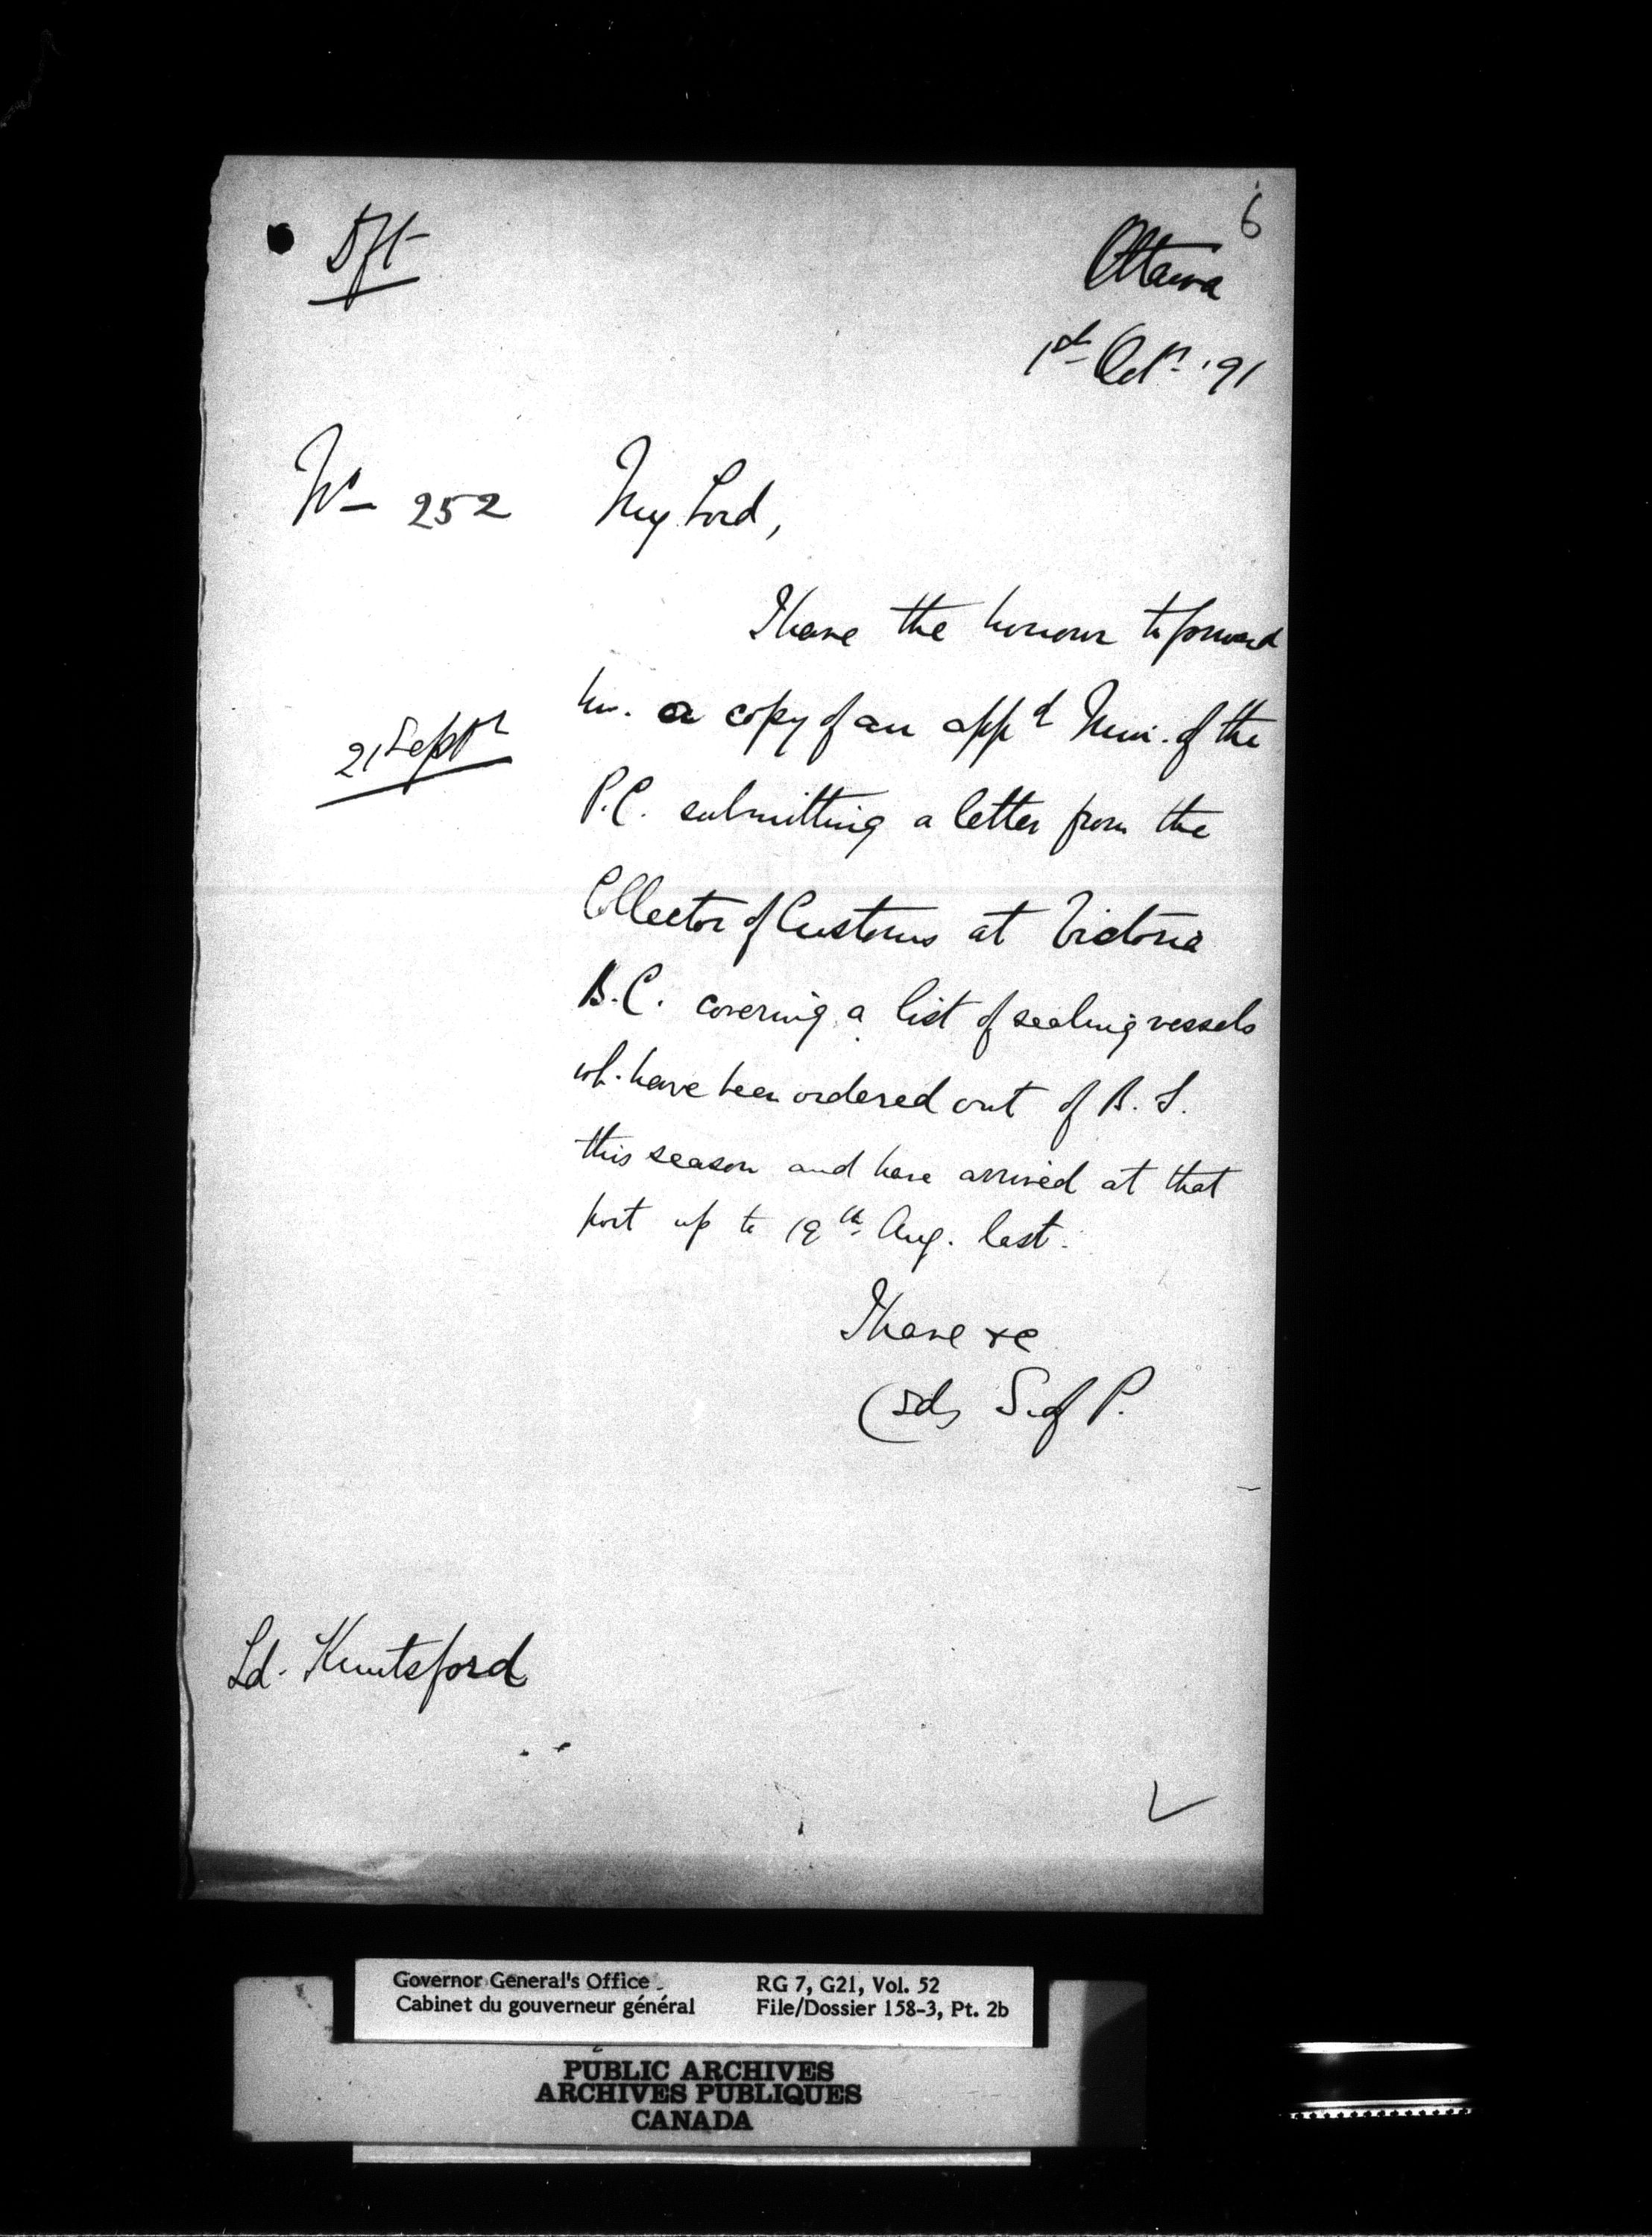 6
Dft
Ottawa
1st Octr '91
No 252
My Lord,
I have the honour to forward
hw. a copy of an appd Min. of the
21 Septr
P.C. submitting a letter from the
Collector of Customs at Victoria
B.C. covering a list of sealing vessels
wh. have been ordered out of B. S.
this season and have arrived at that
port up to 19th Aug. last.
I have &c
(sd) S. of P.
Ld. Knutsford
Governor General's Office
Cabinet du gouverneur général
RG 7, G21, Vol. 52
File/Dossier 158-3, Pt. 2b
PUBLIC ARCHIVES
ARCHIVES PUBLIQUES
CANADA